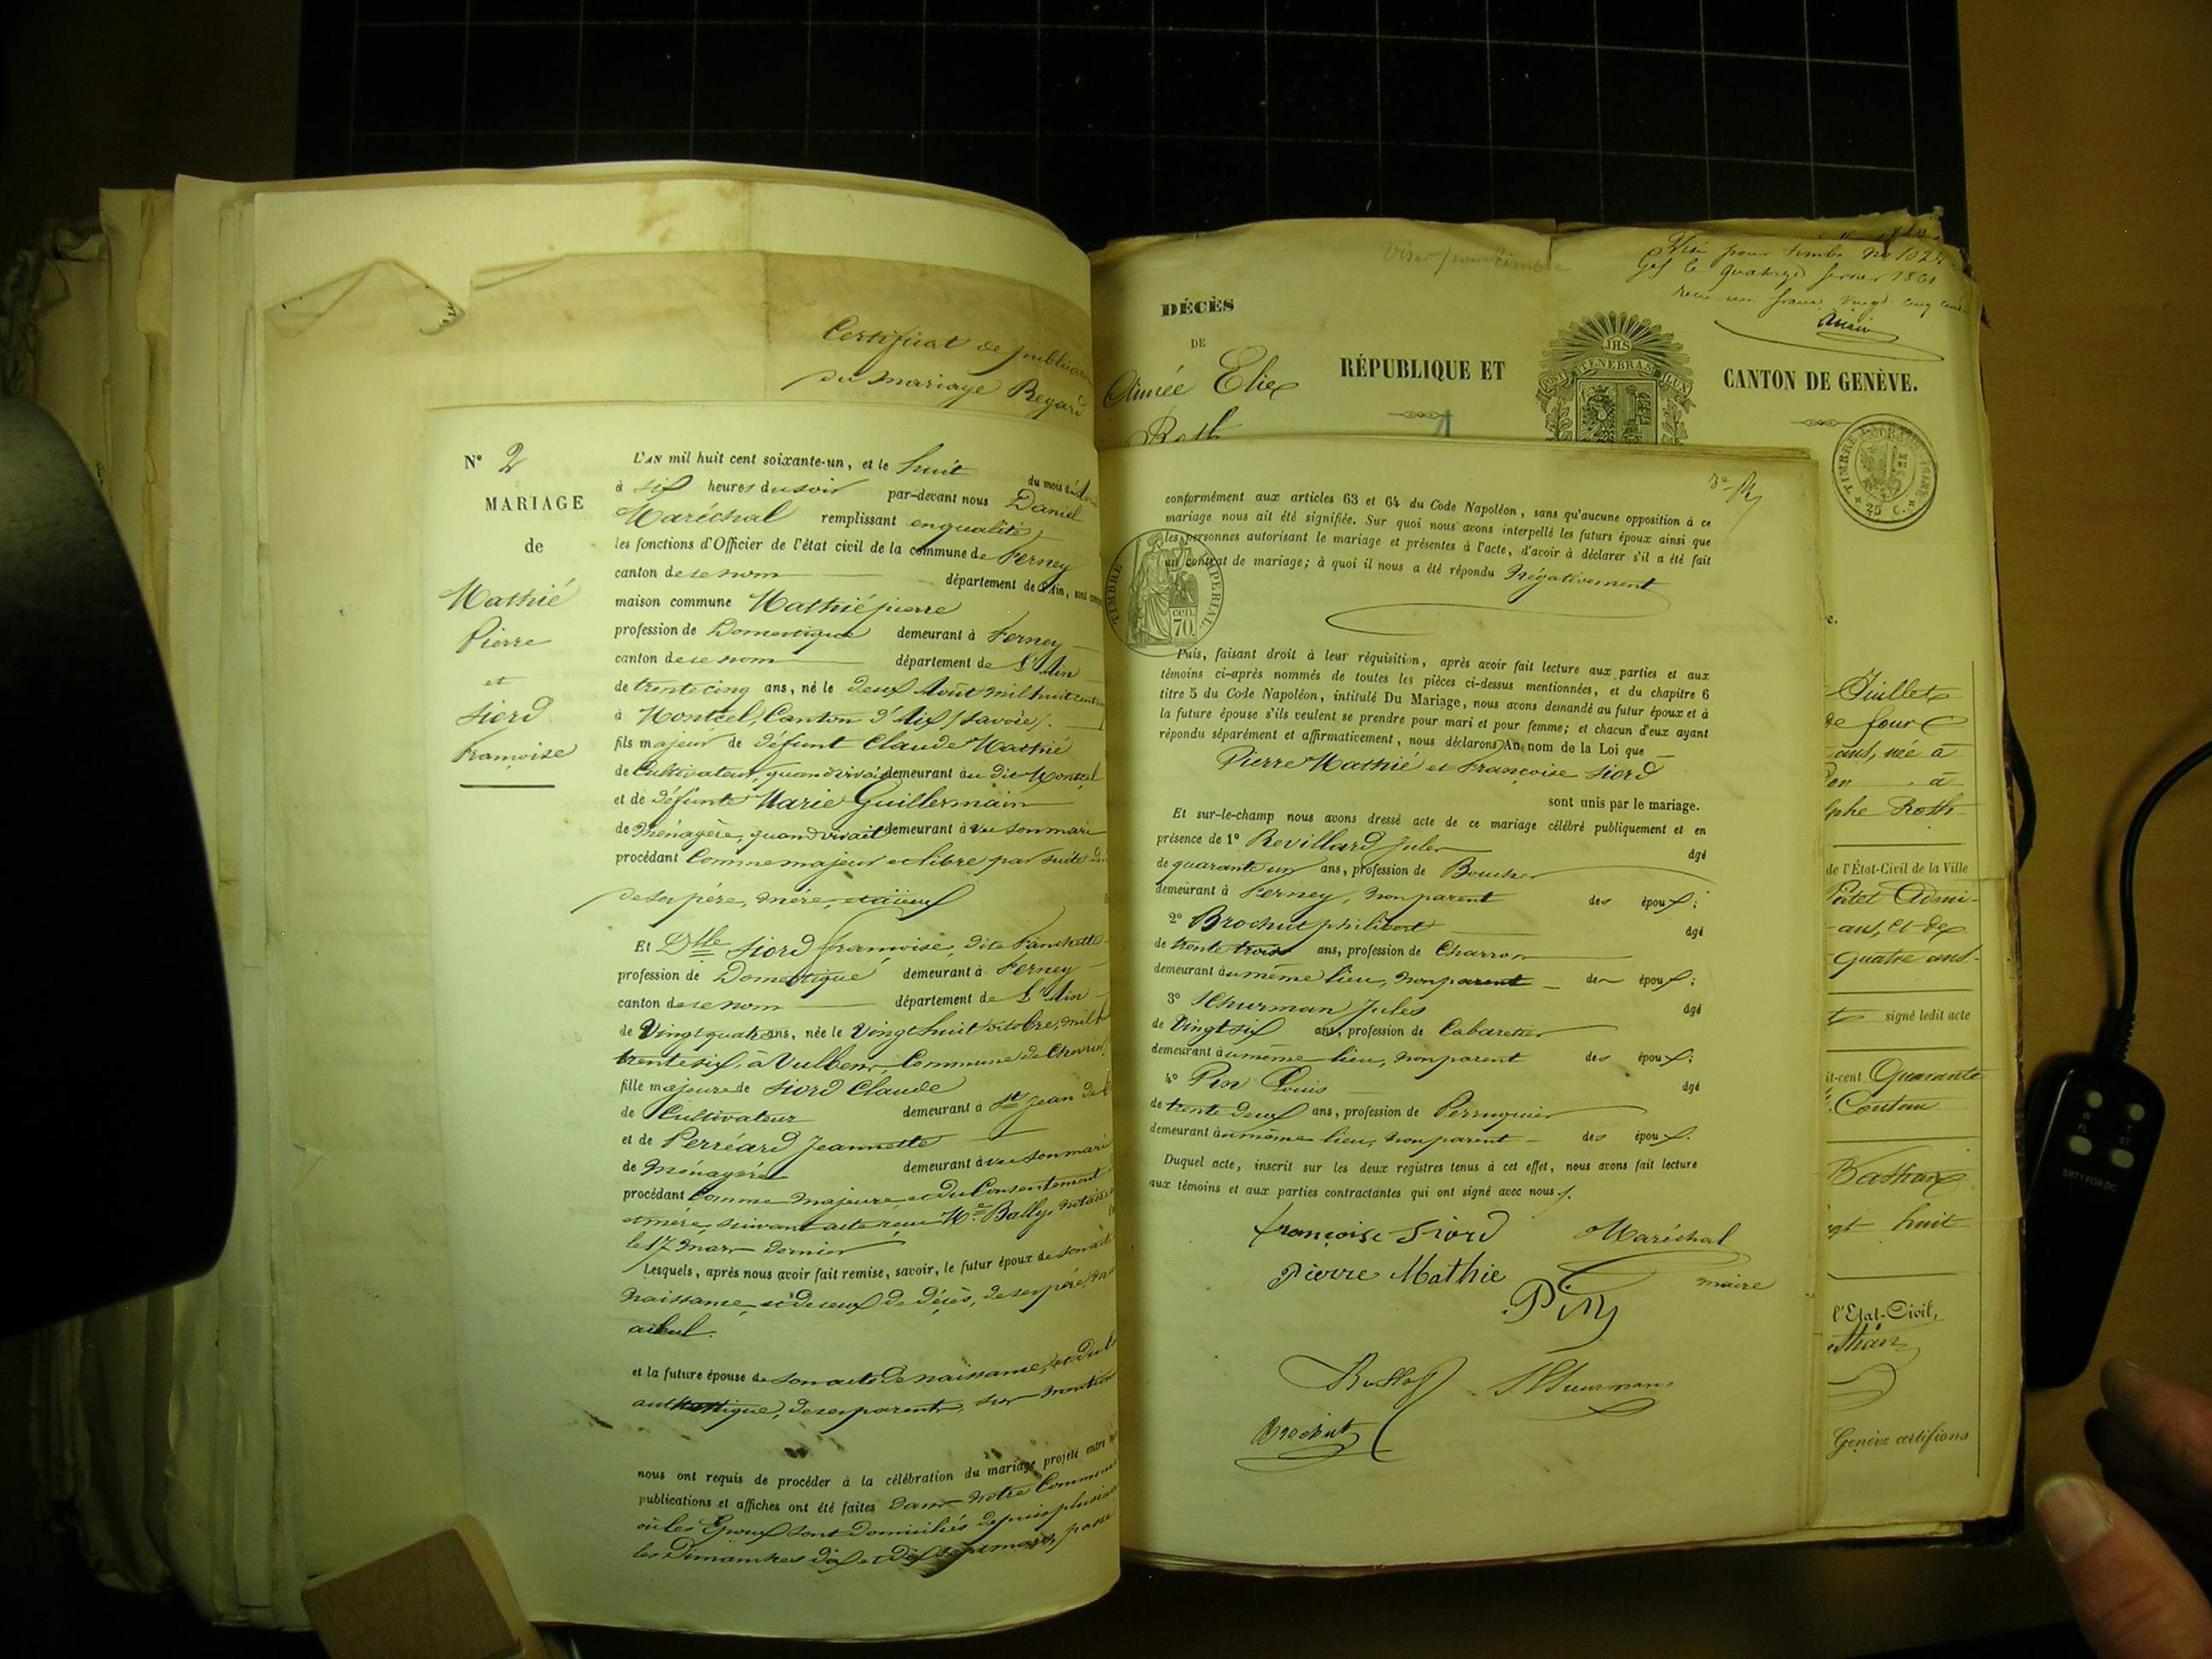 Certificat de publication
du mariage Regard
N° 2
MARIAGE
de
Mathié
Pierre
et
Siord
Françoise
L'AN mil huit cent soixante-un, et le huit du mois
à six heures du soir par-devant nous Daniel
Maréchal remplissant en qualité
les fonctions d'Officier de l'état civil de la commune de Ferney
canton de ce nom département de l'Ain, sont
maison commune Mathié pierre
profession de Domestique demeurant à Ferney
canton de ce nom département de L'Ain
de trente cinq ans, né le deux Août mil huit cent
à Montcel, Canton d'Aix (Savoie).
fils majeur de défunt Claude Mathié
de Cultivateur, quand vivait demeurant au dit Montcel
et de défunte Marie Guillermain
de Ménagère, quand vivait demeurant à vec son mari
procédant Comme majeur et libre par suite
de ses père, mère, et aïeux
Et Dlle Siord françoise, dite Fanchette
profession de Domestique demeurant à Ferney
canton de ce nom département de L'Ain
de Vingt quatre ans, née le Vingt huit octobre, mil
trente six, à Vulbens, Commune de
fille majeure de Siord Claude
de Cultivateur demeurant à St Jean de
et de Perréard Jeannette
de Ménagère demeurant à vec son mari
procédant Comme majeure, et du Consentement
et mère, suivant acte reçu Me Bally, notaire
le 17 mars dernier
Lesquels, après nous avoir fait remise, savoir, le futur époux de son acte
Naissance, et de ceux de décès, de ses père,
aïeul.
et la future épouse de son acte de naissance, et du
authentique, de ses parents, sus
nous ont requis de procéder à la célébration du mariage projeté entre
publications et affiches ont été faites dans notre Commune
où les Epoux sont domiciliés depuis plusieurs
les Dimanches dix et dix sept mars, passé
Viser pour timbre
Visé pour timbre No
Gex le quatorze
reçu un franc vingt cinq
DÉCÈS
DE
Aimée Elise
Roth
RÉPUBLIQUE ET CANTON DE GENÈVE.
JHS
POST TENEBRAS LUX
25 C.
conformément aux articles 63 et 64 du Code Napoléon, sans qu'aucune opposition à ce
mariage nous ait été signifiée. Sur quoi nous avons interpellé les futurs époux ainsi que
les personnes autorisant le mariage et présentes à l'acte, d'avoir à déclarer s'il a été fait
un contrat de mariage; à quoi il nous a été répondu Négativement
TIMBRE IMPERIAL
70 cen.
Puis, faisant droit à leur réquisition, après avoir fait lecture aux parties et aux
témoins ci-après nommés de toutes les pièces ci-dessus mentionnées, et du chapitre 6
titre 5 du Code Napoléon, intitulé Du Mariage, nous avons demandé au futur époux et à
la future épouse s'ils veulent se prendre pour mari et pour femme; et chacun d'eux ayant
répondu séparément et affirmativement, nous déclarons Au nom de la Loi que
Pierre Mathié et Françoise Siord
sont unis par le mariage.
Et sur-le-champ nous avons dressé acte de ce mariage célébré publiquement et en
présence de 1° Revillard Jules âgé
de quarante un ans, profession de Boucher
demeurant à Ferney, non parent des époux;
2° Brochut philibert âgé
de trente trois ans, profession de Charron
demeurant au même lieu, non parent des époux;
3° Schurman Jules âgé
de Vingt six ans, profession de Cabaretier
demeurant au même lieu, non parent des époux;
4° Pin Louis âgé
de trente deux ans, profession de Perruquier
demeurant au même lieu, non parent des époux.
Duquel acte, inscrit sur les deux registres tenus à cet effet, nous avons fait lecture
aux témoins et aux parties contractantes qui ont signé avec nous.
françoise Siord Maréchal
Pierre Mathie maire
Pin
Schurmann
Brochut
Juillet
de four
ans, née à
à
Roth
de l'État-Civil de la Ville
ans, et de
quatre ans
signé ledit acte
it-cent Quarante
Coutau
huit
l'Etat-Civil,
Genève certifions
SRT1 FOR DC